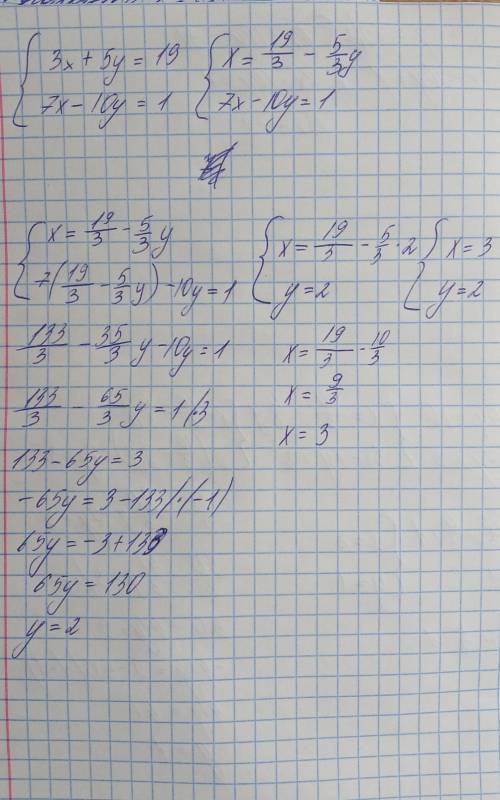 { 3x + 5y = 19   { x = 19/3 - 5/3 y
{ 7x - 10y = 1   { 7x - 10y = 1
{ x = 19/3 - 5/3 y
{ 7(19/3 - 5/3 y) - 10y = 1
133/3 - 35/3 y - 10y = 1
133/3 - 65/3 y = 1 |·3
133 - 65y = 3
-65y = 3 - 133 |·(-1)
65y = -3 + 133
65y = 130
y = 2
{ x = 19/3 - 5/3 · 2   { x = 3
{ y = 2   { y = 2
x = 19/3 - 10/3
x = 9/3
x = 3